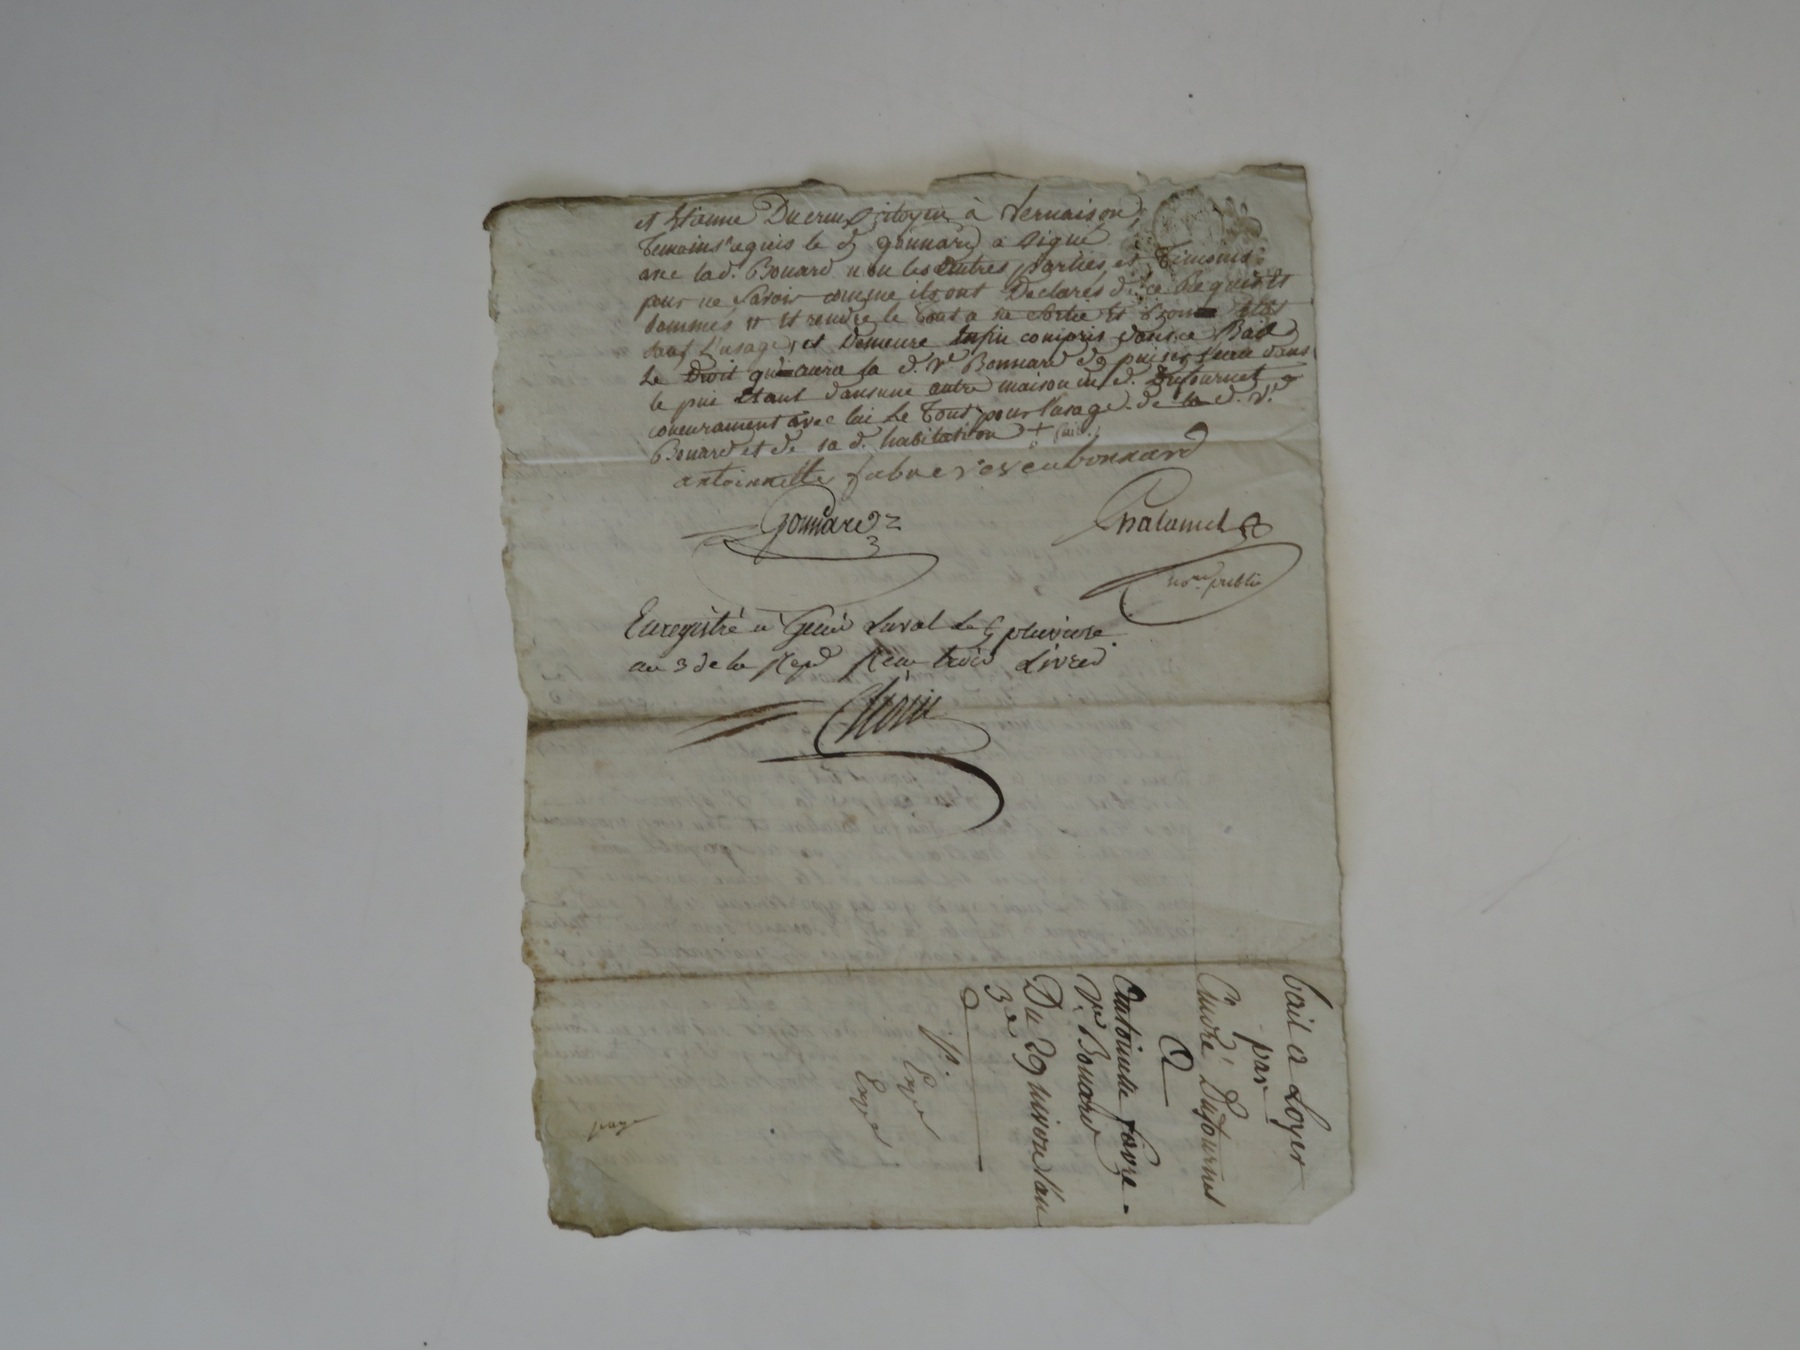 et Etienne Ducreux citoyen à Vernaison
Temoins requis le d. gonnard a signé
avec lad. Bonard non les autres parties et Temoins
pour ne savoir comme ils ont Déclarés de ce Requis et
sommés et rendre le tout a sa sortie et bon état
sauf l'usage, et Demeure enfin compris dans ce Bail
Le Droit qu'aura la d. Ve Bonnard de puiser l'eau dans
le pui étant dans une autre maison du d. Dufournet
concurament avec lui Le Tout pour l'usage de la d. Ve
Bonard et de sa d. habitation +
antoinette fabvre vev bonnard
Gonnard
Chalamel
nore public
Enregistré a Genis Laval Le 5 pluviose
an 3 de la Rep Recu trois Livres
bail a Loyer
par
André Dufournet
a
Antoinette Favre
Ve Bonard
Du 29 nivose l'an
3e
Exp
Exp